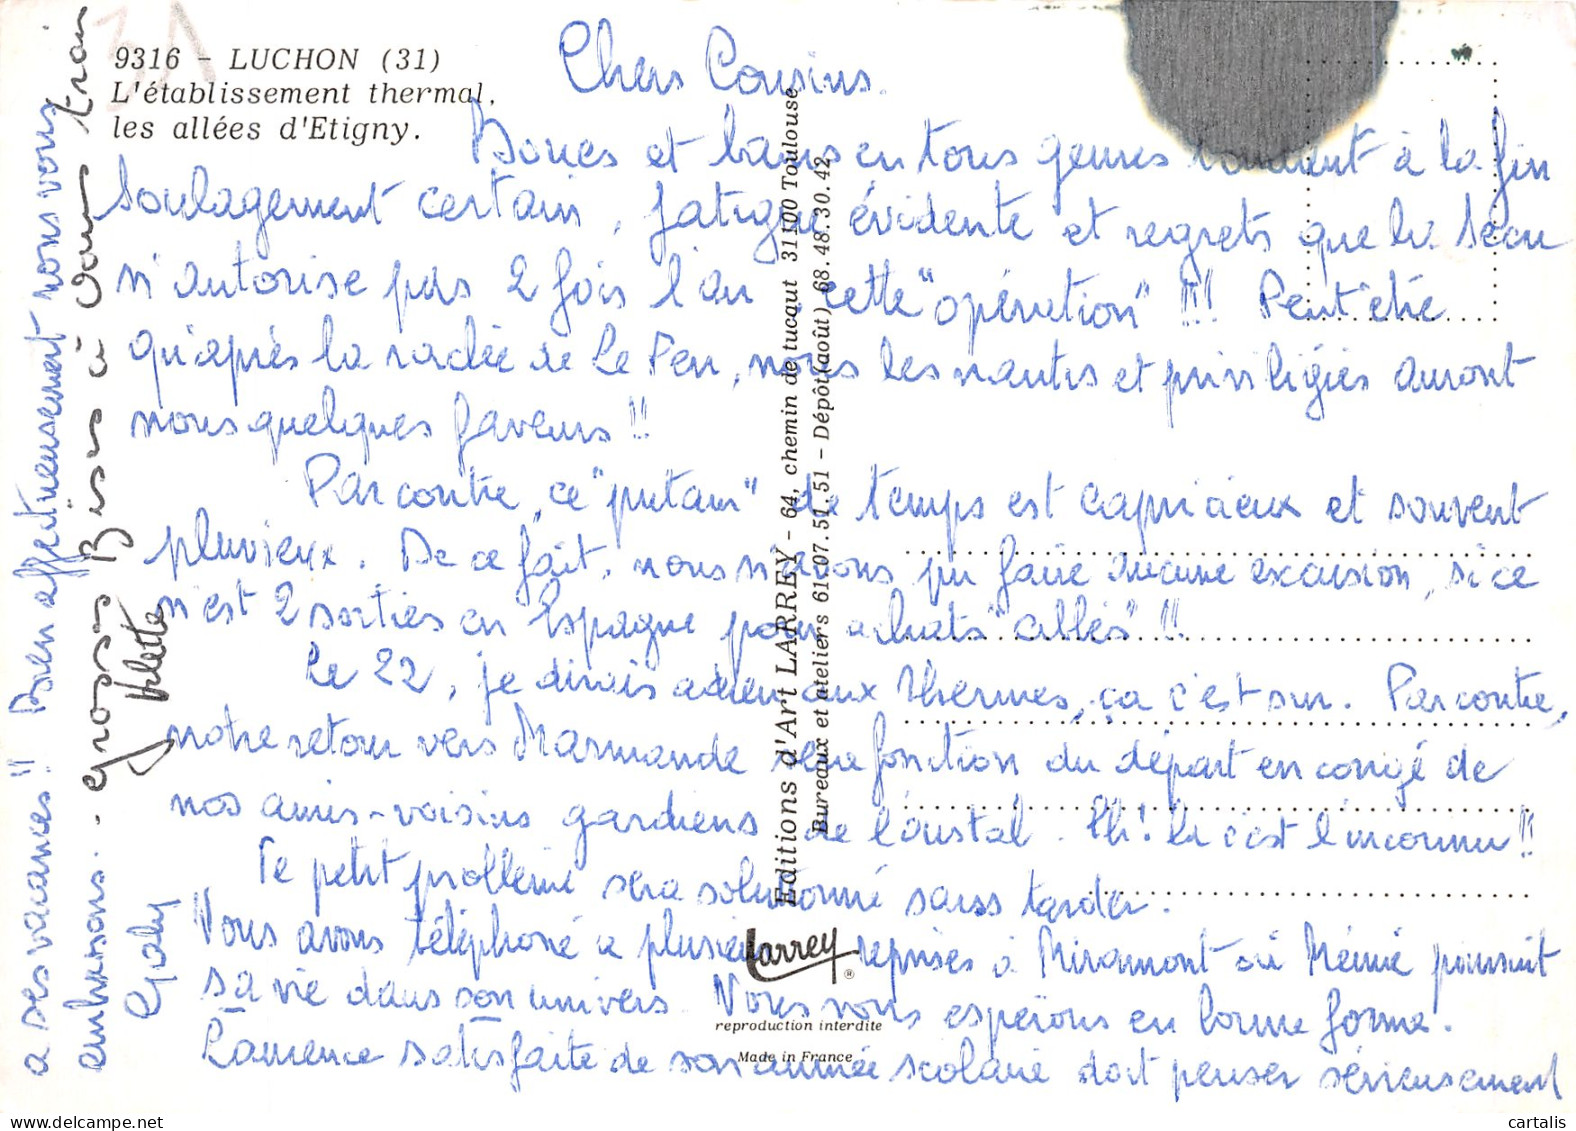 9316 - LUCHON (31)
L'établissement thermal,
les allées d'Etigny.
Chers Cousins.
Boues et bains en tous genres donnent à la fin
soulagement certain, fatigue évidente et regrets que la Sécu
n'autorise pas 2 fois l'an cette "opération" !!! Peut être
qu'après la raclée de Le Pen, nous les nantis et privilégiés auront
nous quelques faveurs !!
Par contre, ce "putain" de temps est capricieux et souvent
pluvieux. De ce fait, nous n'avons pu faire aucune excursion, si ce
n'est 2 sorties en Espagne pour achats
Le 22, je dirais adieu aux thermes, ça c'est sur. Par contre,
notre retour vers Marmande sera fonction du départ en congé de
nos amis-voisins gardiens de l'oustal. Ah! là c'est l'inconnu !!
Ce petit problème sera solutionné sans tarder.
Vous avons téléphoné à plusieurs reprises à Miramont où Mémé poursuit
sa vie dans son univers. Nous vous espérons en bonne forme.
Laurence satisfaite de son année scolaire doit penser sérieusement
à ses vacances !! Bien affectueusement nous vous
embrassons.
Gaby
grosses Bises à vous trois
Arlette
Editions d'Art LARREY - 64, chemin de tucaut 31100 Toulouse
Bureaux et ateliers 61.07.51.51 - Dépôt (août) 68.48.30.42
Larrey
®
reproduction interdite
Made in France
cartalis